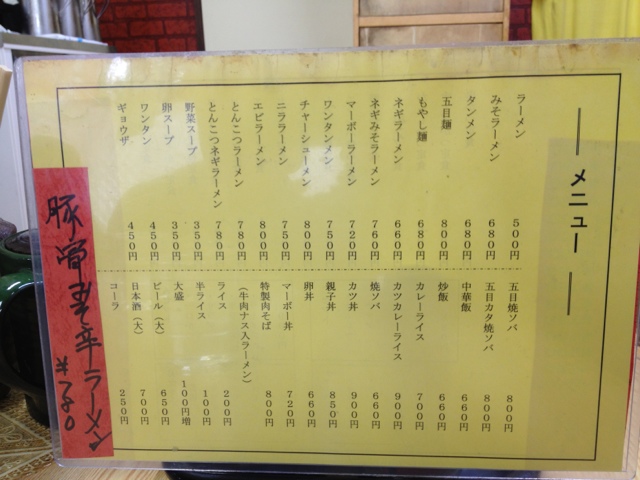 メニュー
ラーメン 500円
みそラーメン 680円
タンメン 680円
五目麺 800円
もやし麺 680円
ネギラーメン 660円
ネギみそラーメン 760円
マーボーラーメン 720円
ワンタンメン 750円
チャーシューメン 800円
ニララーメン 750円
エビラーメン 800円
とんこつラーメン 780円
とんこつネギラーメン 780円
野菜スープ 350円
卵スープ 350円
ワンタン 450円
ギョウザ 450円
五目焼ソバ 800円
五目カタ焼ソバ 800円
中華飯 660円
炒飯 660円
カレーライス 700円
カツカレーライス 900円
焼ソバ 660円
カツ丼 900円
親子丼 850円
卵丼 660円
マーボー丼 720円
特製肉そば 800円
(牛肉ナス入ラーメン)
ライス 200円
半ライス 100円
大盛 100円増
ビール(大) 650円
日本酒(大) 700円
コーラ 250円
豚骨 辛ラーメン
¥780